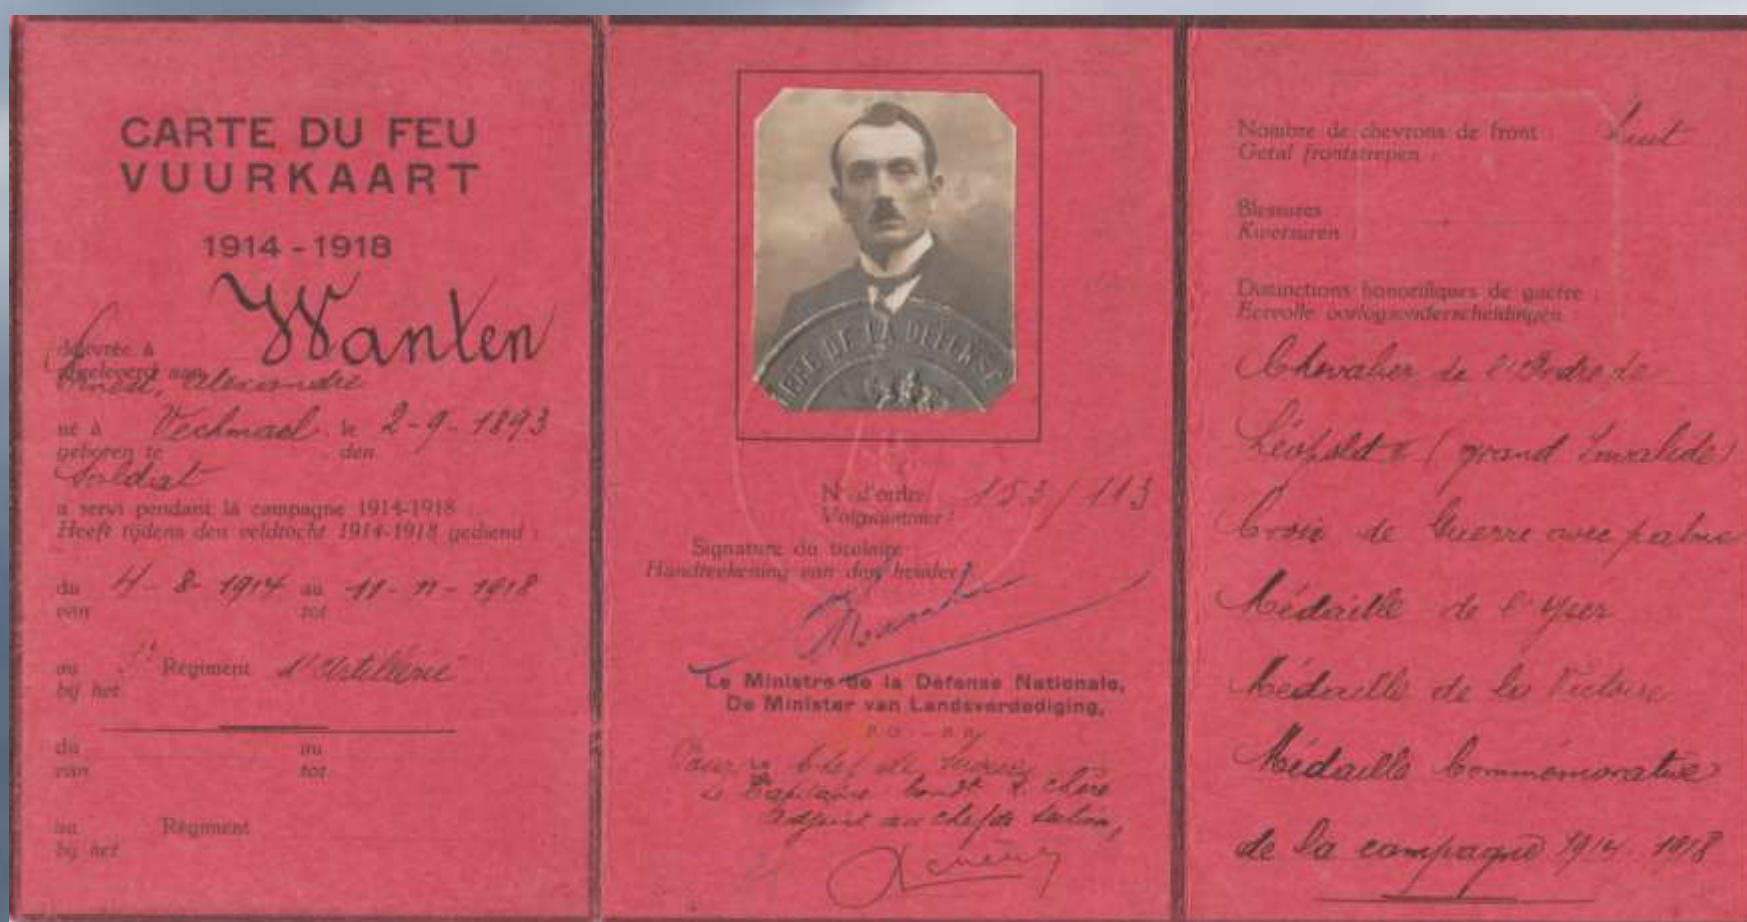 CARTE DU FEU
VUURKAART
1914 - 1918
Wanten
délivrée à
afgeleverd aan
Ernest, Alexandre
né à Vechmael le 2-9-1893
geboren te den
Soldat
a servi pendant la campagne 1914-1918
Heeft tijdens den veldtocht 1914-1918 gediend :
du 4-8-1914 au 11-11-1918
van tot
au Régiment d'Artillerie
bij het
du au
van tot
au Régiment
bij het
DE LA DEFENSE
N° d'ordre : 153/113
Volgnummer :
Signature du titulaire
Handteekening van den houder
Le Ministre de la Défense Nationale,
De Minister van Landsverdediging,
P. O. - B. B.
Pour le Chef de
Le Capitaine Comdt
adjoint au chef de section,
Nombre de chevrons de front : huit
Getal frontstrepen :
Blessures :
Kwetsuren :
Distinctions honorifiques de guerre :
Eervolle oorlogsonderscheidingen :
Chevalier de l'Ordre de
Léopold II (grand Invalide)
Croix de Guerre avec palme
Médaille de l'Yser
Médaille de la Victoire
Médaille Commémorative
de la campagne 1914 1918